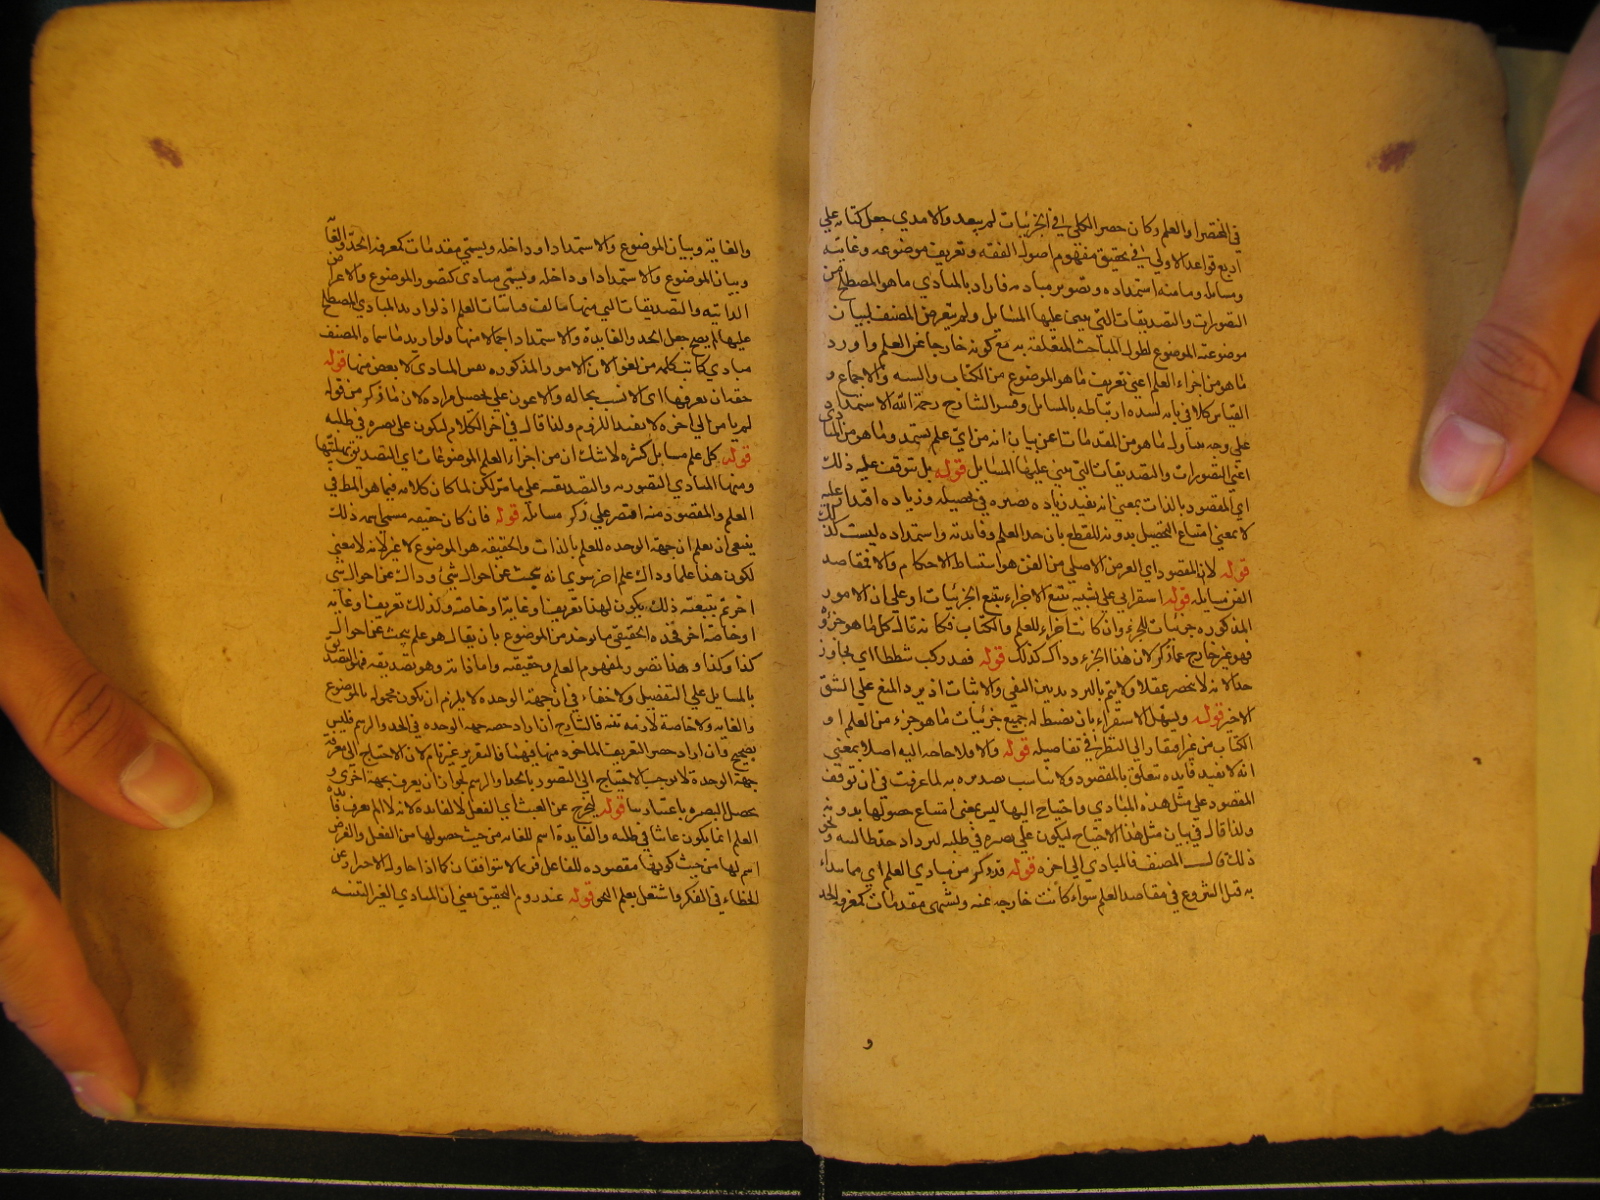 في المختصر او العلم وكان حصر الكلي في الجزئيات لم يبعد والامدي جعل كتابه علي
اربع قواعد الاولي في تحقيق مفهوم اصول الفقه وتعريف موضوعه وغايته
ومسايله وما منه استمداده وتصوير مباديه فاراد بالمبادي ما هو المصطلح من
التصورات والتصديقات التي يبتني عليها المسايل ولم يتعرض المصنف لبيان
موضوعيه الموضوع لطول المباحث المتعلقة به مع كونه خارجا عن العلم واورد
ما هو من اجزاء العلم اعني تعريف ما هو الموضوع من الكتاب والسنه والاجماع و
القياس كلا في بابه لشده ارتباطه بالمسايل وفسر الشارح رحمة الله الاستمداد
علي وجه يتناول ما هو من المقدمات اعن بيان انه من اي علم يستمد وما هو من المبادي
اعني التصورات والتصديقات التي يبتني عليها المسايل قوله بل تتوقف عليه ذلك
اي المقصود بالذات بمعني انه يفيد زياده بصيره في تحصيله وزياده اقتدار عليه
لا بمعني امتناع التحصيل بدونه للقطع بان حد العلم وفايدته واستمداده ليست كذلك
قوله لان المقصود اي الغرض الاصلي من الفن هو استنباط الاحكام والا فمقاصد
الفن مسايله قوله استقرايي علي تشبيه تتبع الاجزاء بتتبع الجزئيات او علي ان الامور
المذكوره جزئيات للجزء وان كانت اجزاء للعلم والكتاب فكانه قال كل ما هو جزؤه
فهو غير خارج عما ذكر لان هذا الجزء وذاك كذلك قوله فقد ركب شططا اي تجاوز
حدا لانه لا ينحصر عقلا ولا يتم بالترديد بين النفي والاثبات اذ يرد المنع علي الشق
الاخير قوله ويسهل الاستقراء بان يضبط له جميع جزئيات ما هو جزء من العلم او
الكتاب من غير افتقار الي النظر في تفاصيله قوله والا ولا حاجه اليه اصلا بمعني
انه لا يفيد فايده تتعلق بالمقصود ولا يناسب تصديره به لما عرفت في ان توقف
المقصود علي مثل هذه المبادي واحتياج اليها ليس بمعني امتناع حصولها بدونه
ولذا قال في بيان مثل هذا الاحتياج ليكون علي بصيره في طلبه ليزداد حفظا لسه ونحو
ذلك قال المصنف فالمبادي الي اخره قوله قد ذكر من مبادي العلم اي ما يبتداء
به قبل الشروع في مقاصد العلم سواء كانت خارجه عنه ويسمي مقدمات كمعرفه الحد
و
والغايه وبيان الموضوع والاستمداد او داخله ويسمي مقدمات كمعرفه الحد والغايه
وبيان الموضوع والاستمداد او داخله ويسمي مبادي كتصور الموضوع والاعراض
الذاتيه والتصديقات التي منها تالف قياسات العلم اذ لو اريد المبادي المصطلح
عليها لم يصح جعل الحد والفايدة والاستمداد اجمالا منها ولو اريد ما سماه المصنف
مبادي كانت كلمه من لغوا لان الامور المذكوره نفس المبادي لا بعض منها قوله
حقه ان يعرفها اي الانسب بحاله والاعون علي تحصيل مراده لان ما ذكر من قوله
ليريا من الي اخره لا يفيد اللزوم ولذا قال في آخر الكلام ليكون علي بصره في طلبه
قوله كل علم مسايل كثيره لا شك ان من اجزاء العلم الموضوعات اي التصديق بهليتها
ومنها المبادي التصوريه والتصديقيه علي ما مر لكن لما كان كلامه فيما هو المط في
العلم والمقصود منه اقتصر علي ذكر مسايله قوله فان كان حقيقه مسمي اسمه ذلك
ينبغي ان يعلم ان جهة الوحده للعلم بالذات والحقيقه هو الموضوع لا غير لانه لا معني
لكون هذا علما وذاك علم اخر سوي انه يبحث عن احوال شئ وذاك عن احوال شئ
اخر ثم يتبعته ذلك يكون لهذا تعريفا وغاية او خاصة ولذلك تعريفا وغايه
او خاصة اخر فحده الحقيقي ما يوخذ من الموضوع بان يقال هو علم يبحث عن احوال
كذا وكذا وهذا تصور لمفهوم العلم وحقيقته واما ذاته وهو تصديقه فهو التصديق
بالمسايل علي التفصيل ولا خفاء في ان جهة الوحده لا يلزم ان يكون محموله بالموضوع
والغايه ولا خاصة لازمه بينه فالشارح ان اراد حصر جهه الوحده في الحد والرسم فليس
بصحيح وان اراد حصر التعريف الماخوذ منها فيهما فالتقرير غير تام لان الاحتياج الي معرفة
جهة الوحدة لا يوجب الاحتياج الي التصور بالحد او الرسم لجواز ان يعرف بجهة اخري و
يحصل البصره باعتبارها قوله ليخرج عن العبث اي الفعل لا لفايده لانه لا لم يعرف فايده
العلم انما يكون عابثا في طلبه والفايدة اسم للغايه من حيث حصولها من الفعل والغرض
اسم لها من حيث كونها مقصوده للفاعل فربما لا يتوافقان كما اذا حاول الاحتراز عن
الخطاء في الفكر واشتغل بعلم النحو قوله عند روم التحقيق يعني ان المبادي الغير البينه